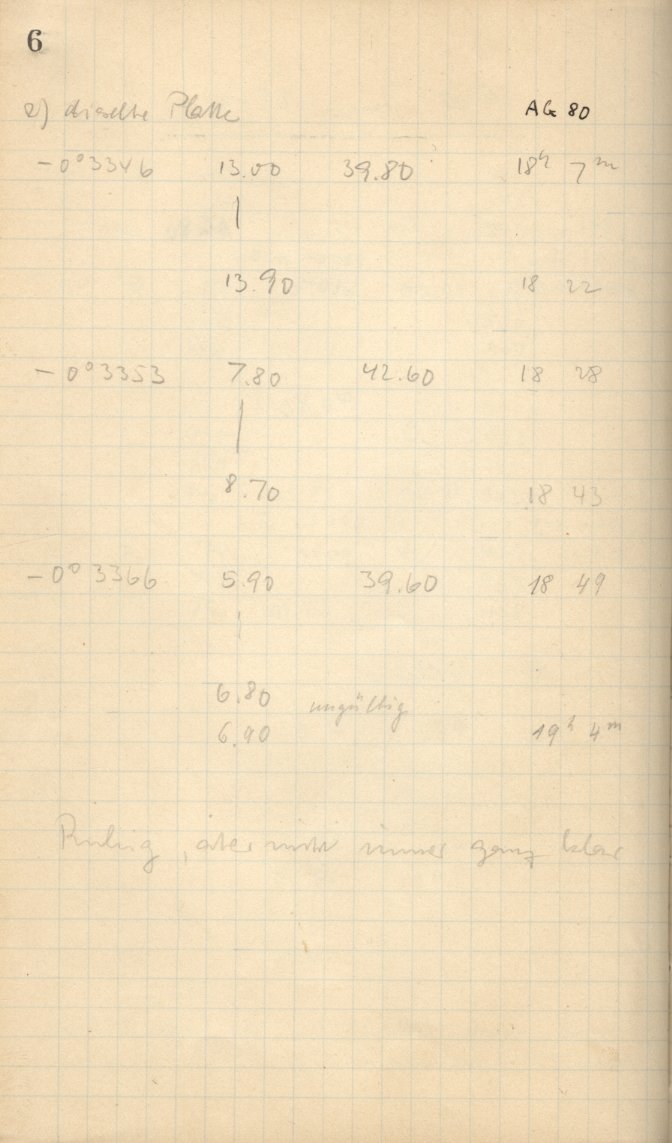 6
2) dieselbe Platte AG 80
-0°3346 13.00 39.80 18h 7m
|
13.90 18 22
-0°3353 7.80 42.60 18 28
|
8.70 18 43
-0°3366 5.90 39.60 18 49
|
6.80 ungültig
6.90 19h 4m
Ruhig, aber nicht immer ganz klar